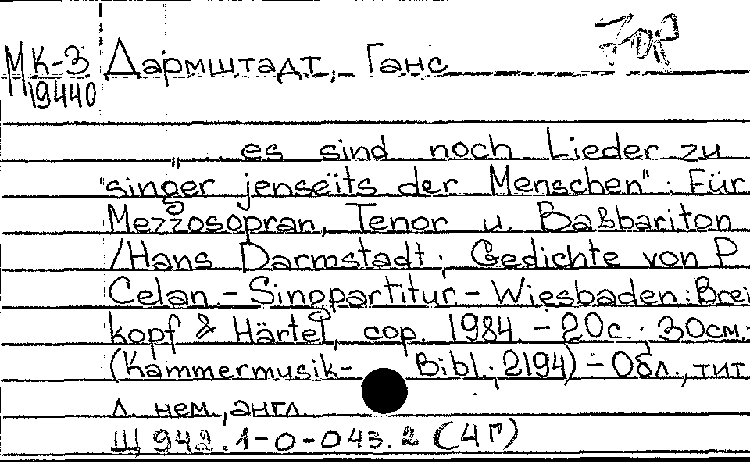 МК-3 Дармштадт, Ганс
19440
"... es sind noch Lieder zu
singer jenseits der Menschen": Für
Mezzosopran, Tenor u. Baßbariton
/Hans Darmstadt; Gedichte von P
Celan. - Singpartitur - Wiesbaden: Brei
kopf & Härtel, cop. 1984. - 20с.; 30см.
(Kammermusik- Bibl.; 2194) - Обл., тит
л. нем., англ
Щ 942.1-0-043.2 (4Г)